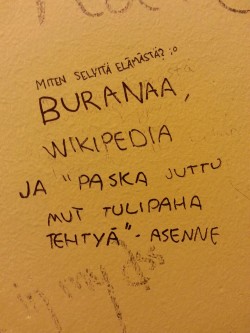 MITEN SELVITÄ ELÄMÄSTÄ? :o
BURANAA,
WIKIPEDIA
JA "PASKA JUTTU
MUT TULIPAHA
TEHTYÄ"- ASENNE